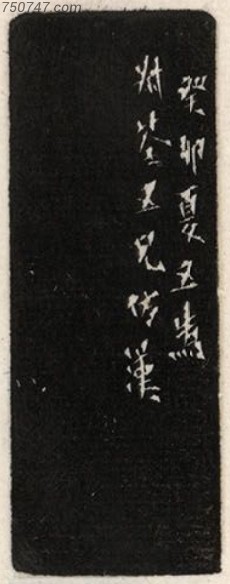 750747.com
癸卯夏五為
叔荃五兄仿漢